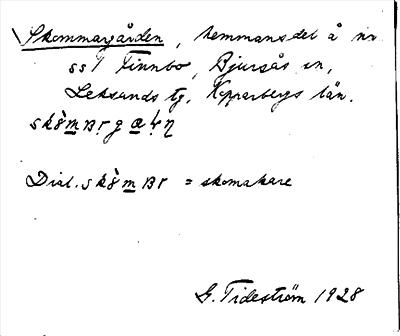 Skommargården, hemmansdel å nr
ss 1 Finnbo, Bjursås sn,
Leksands tg, Kopparbergs län.
Dial. = skomakare
G. Tideström 1928